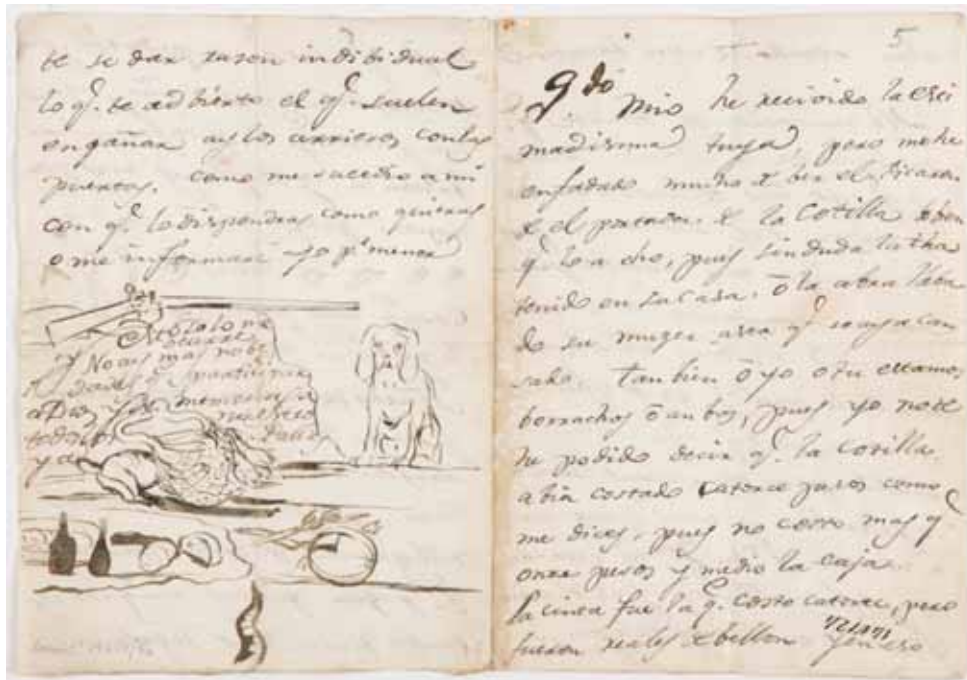 te se dar rason indibidual
lo q.e te adbierto el q.e suelen
engañar a los arrieros con las
puertas. como me sucedio a mi
con q.e lo dispondras como quieras
o me informare yo p.r menor
No ay mas nobe
dades
a Dios
memorias
todos
y a
5
Q.do mio he recivido la esti
madisima tuya, pero me he
enfadado mucho
el portador. la Cotilla
q.e lo a dho, pues sin duda la tha
tenido en su casa. ô la abra lleba
do su muger asta q.e se aya can
sado. tanbien ô yo o tu estamos
borrachos ô anbos, pues yo no te
he podido decir q.e la Cotilla
abia costado catorce pesos como
me dices, pues no costo mas q.e
once pesos y medio la caja
la cinta fue la q.e costo catorce, pero
fueron reales bellon